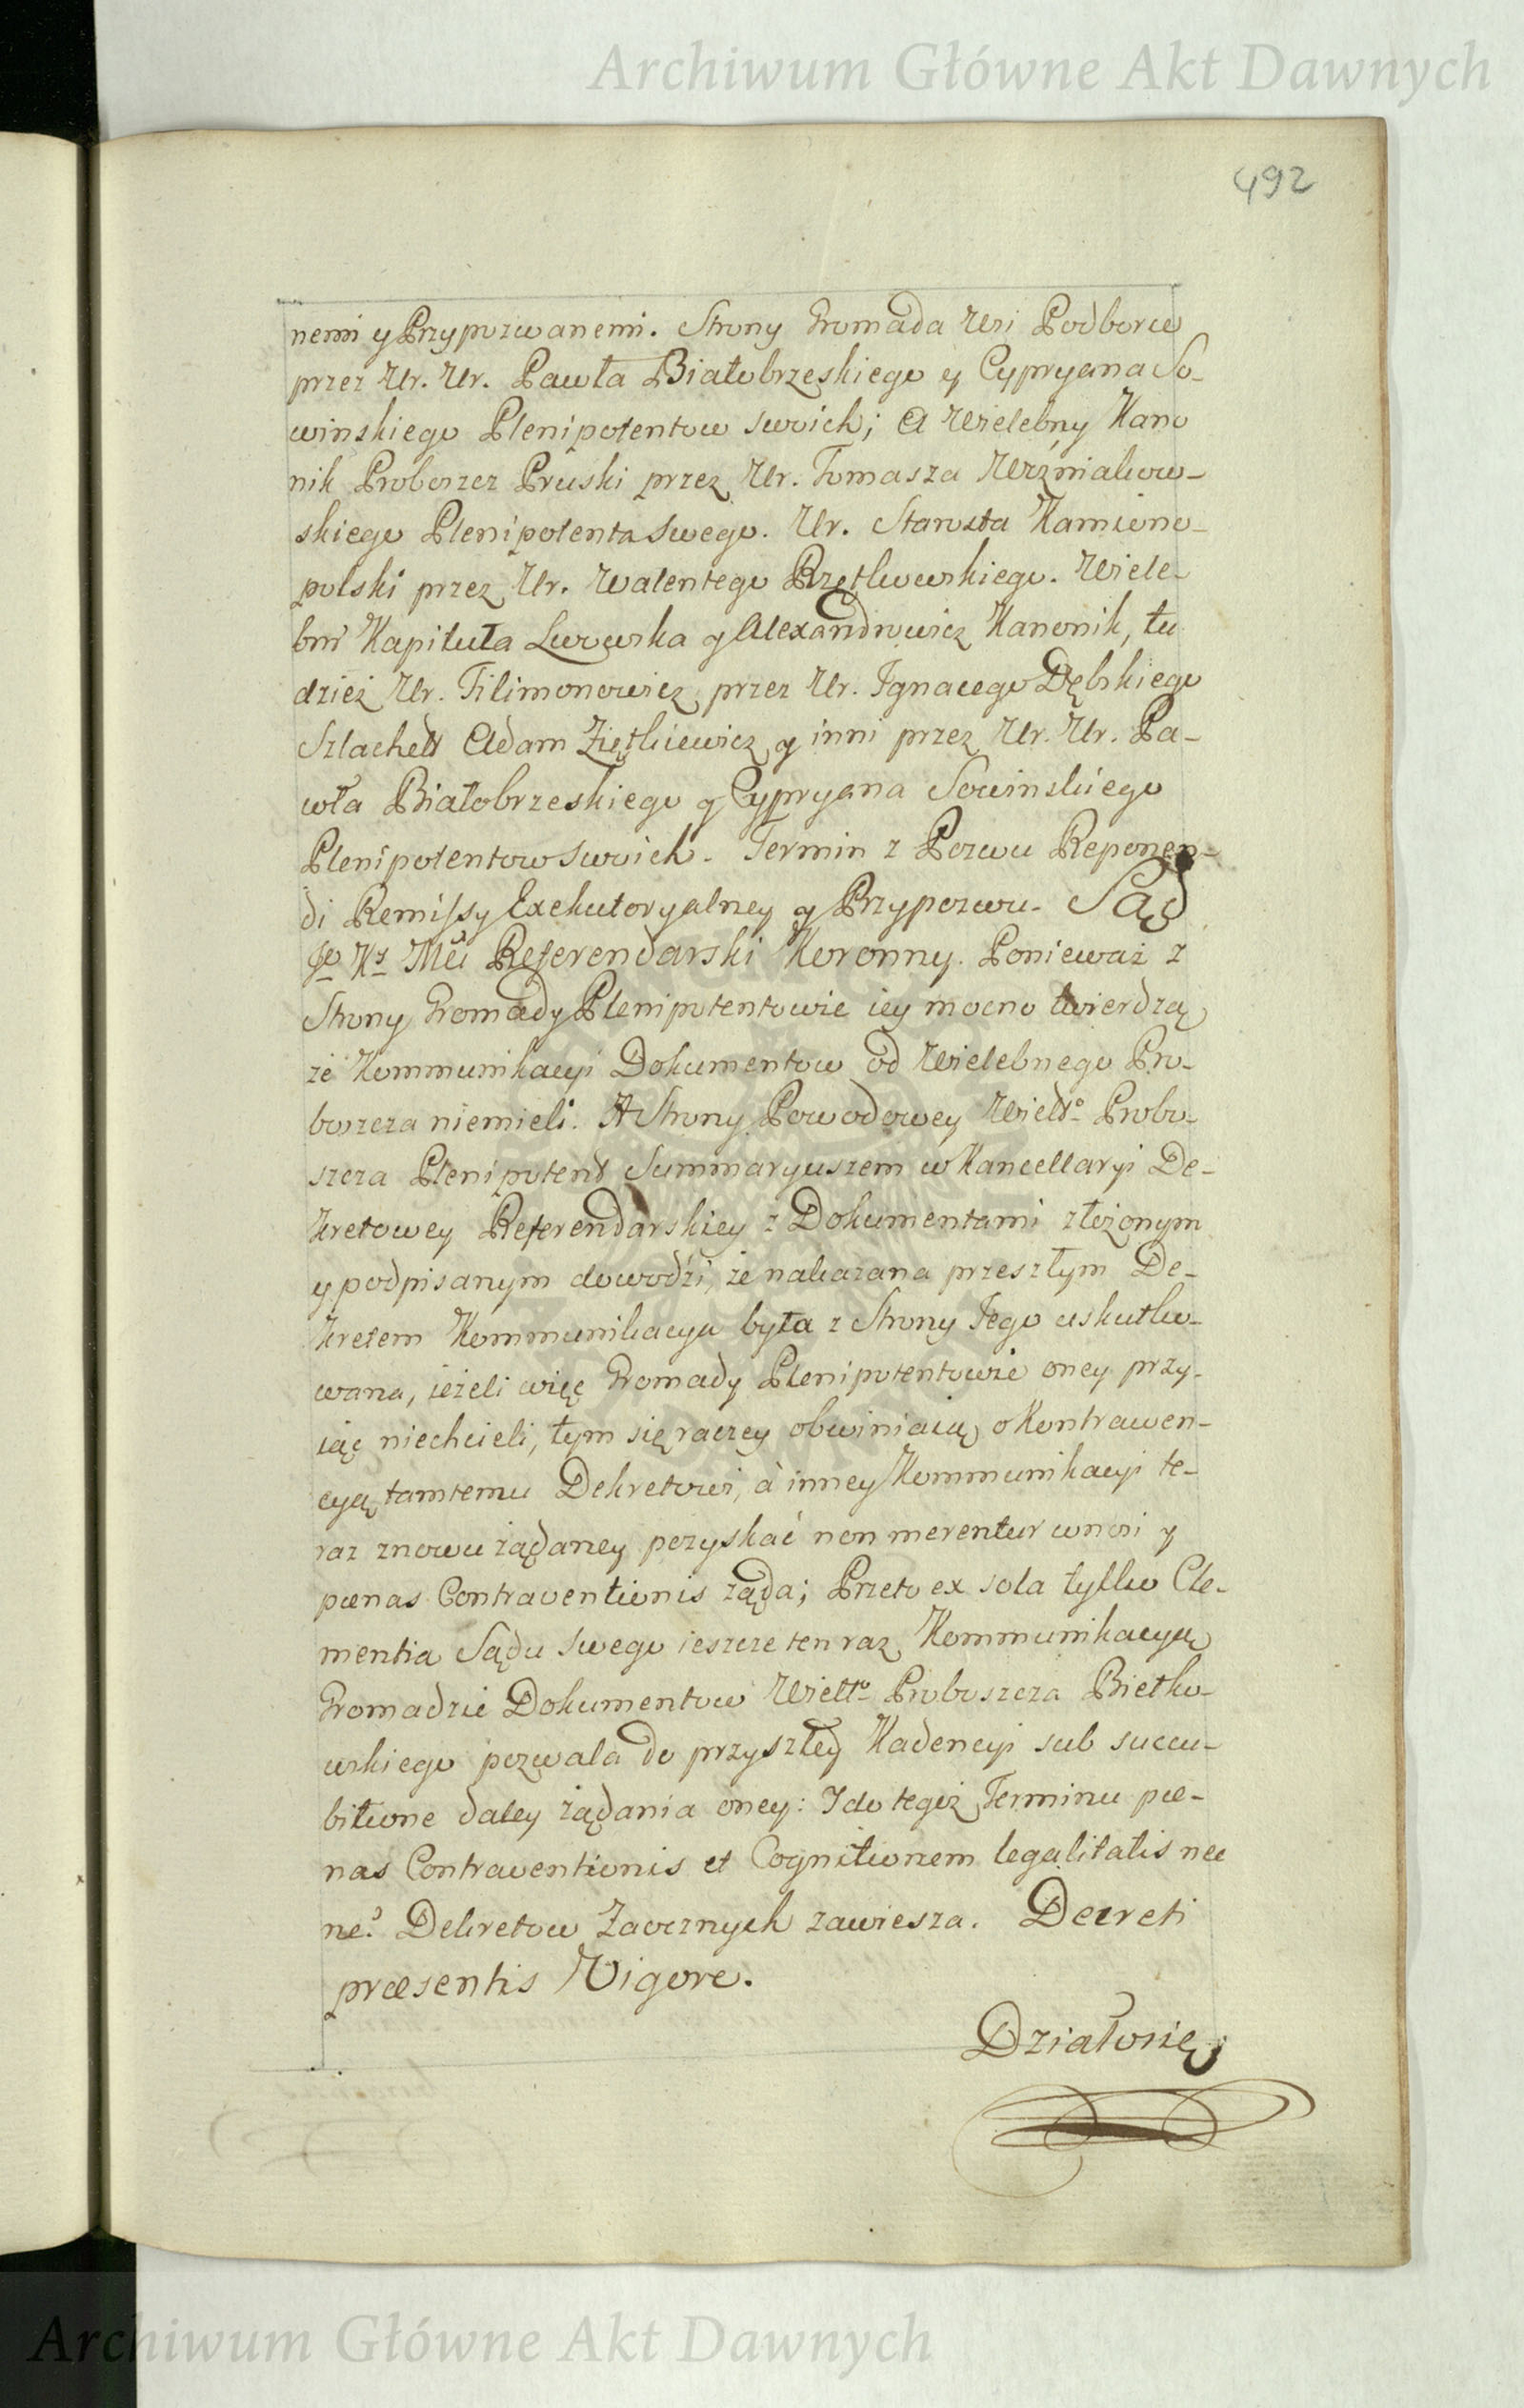 Archiwum Główne Akt Dawnych
492
nemi y Przypozwanemi. Strony Gromada Wsi Podborce
przez Ur. Ur. Pawła Białobrzeskiego y Cypryana So-
winskiego Plenipotentow swoich; A Wielebny Kano
nik Proboszcz Pruski przez Ur. Tomasza Woźniakow-
skiego Plenipotenta Swego. Ur. Starosta Kamiono-
polski przez Ur. Walentego Rzętkowskiego. Wiele-
bni Kapituła Lwowska y Alexandrowicz Kanonik, tu
dzież Ur. Filimonowicz przez Ur. Ignacego Dębskiego
Szlachett Adam Ziętkiewicz y inni przez Ur. Ur. Pa-
wła Białobrzeskiego y Cypryana Sowinskiego
Plenipotentow swoich. Termin z Pozwu Reponen-
di Remissy Exekutoryalney y Przypozwu. Sąd
Jo Ks Mci Referendarski Koronny. Ponieważ z
Strony Gromady Plenipotentowie iey mocno twierdzą
że Kommunikacyi Dokumentow od Wielebnego Pro-
boszcza niemieli. A Strony Powodowey Wieltº Probo-
szcza Plenipotent Summaryuszem w Kancellaryi De-
kretowey Referendarskiey z Dokumentami złożonym
y podpisanym dowodzi, że nakazana przeszłym De-
kretem Kommunikacya była z Strony Jego uskutko-
wana, ieżeli więc Gromady Plenipotentowie oney przy-
iąć niechcieli, tym się raczey obwiniaią o Kontrawen-
cyą tamtemu Dekretowi, à inney Kommunikacyi te-
raz znowu żądaney pozyskać non merentur wnosi y
pœnas Contraventionis żąda; Przeto ex sola tylko Cle-
mentia Sądu Swego ieszcze ten raz Kommunikacyą
Gromadzie Dokumentow Wieltº Proboszcza Biłko-
wskiego pozwala do przyszłey Kadencyi sub succu-
bitione daley żądania oney: I do tegoż Terminu pœ-
nas Contraventionis et Cognitionem legalitatis nec
ne? Dekretow Zaocznych zawiesza. Decreti
præsentis Vigore.
Działo się;
Archiwum Główne Akt Dawnych